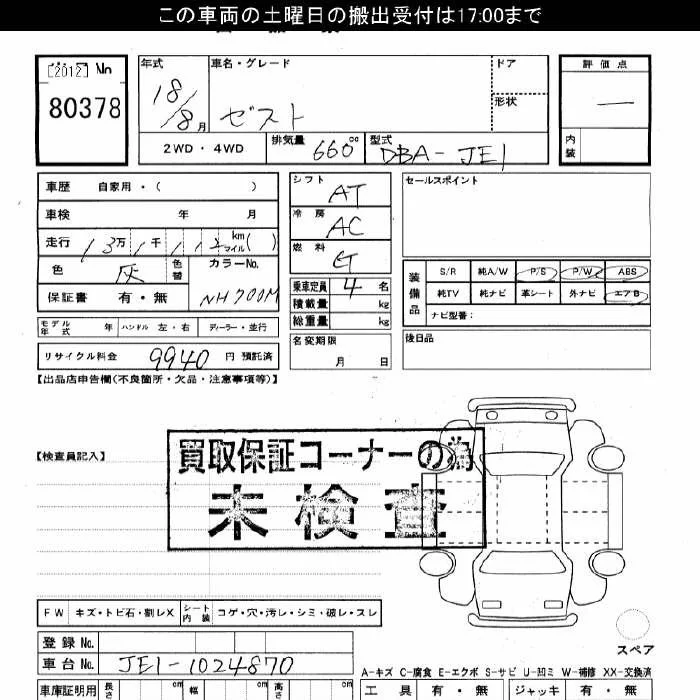 この車両の土曜日の搬出受付は17:00まで
[2012] No
80378
年式 車名・グレード ドア 評価点
18/8月 ゼスト 形状 —
2WD・4WD 排気量 660 cc 型式 DBA-JE1 内装
車歴 自家用・( ) シフト AT セールスポイント
車検 年 月 冷房 AC
走行 13万1千112km マイル( ) 燃料
色 灰 色替 カラーNo. NH700M 乗車定員 4名
保証書 有・無 積載量 kg
総重量 kg
装備品 S/R 純A/W P/S P/W ABS
純TV 純ナビ 革シート 外ナビ エアB
ナビ型番:
モデル年式 年 ハンドル 左・右 ディーラー・並行 名変期限 月 日 後日品
リサイクル料金 9940 円 預託済
【出品店申告欄(不良箇所・欠品・注意事項等)】
【検査員記入】
買取保証コーナーの為
未検査
FW キズ・トビ石・割レX シート内装 コゲ・穴・汚レ・シミ・破レ・スレ
登録No.
車台No. JE1-1024870
スペア
A-キズ C-腐食 E-エクボ S-サビ U-凹ミ W-補修 XX-交換済
車庫証明用 長さ cm 幅 cm 高さ cm 工具 有・無 ジャッキ 有・無